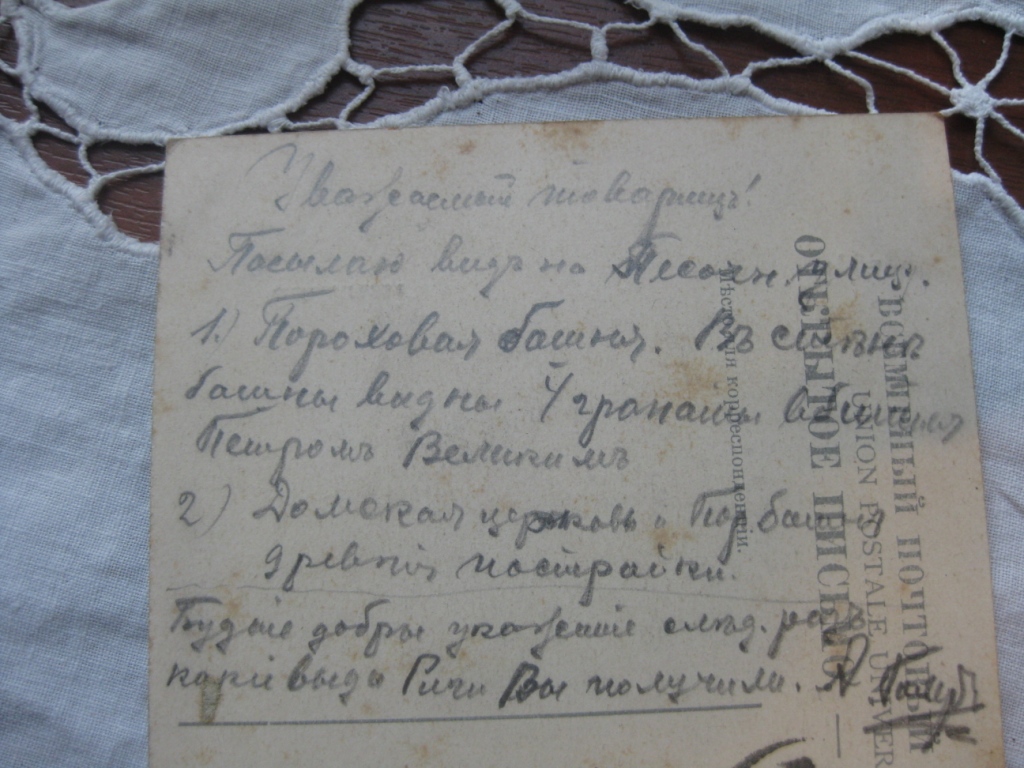 Уважаемый товарищъ!
Посылаю видъ на Песочн. улиц.
1.) Пороховая башня. Въ стѣнѣ
башны видны 4 гранаты
Петромъ Великимъ
2) Домская церковь и Пор. башня
древнiя постройки.
Будте добры укажите слѣд. разъ
какiе виды Риги Вы получили.
ВСЕМІРНЫЙ ПОЧТОВЫЙ
UNION POSTALE UNIVER
ОТКРЫТОЕ ПИСЬМО.
для корреспонденціи.